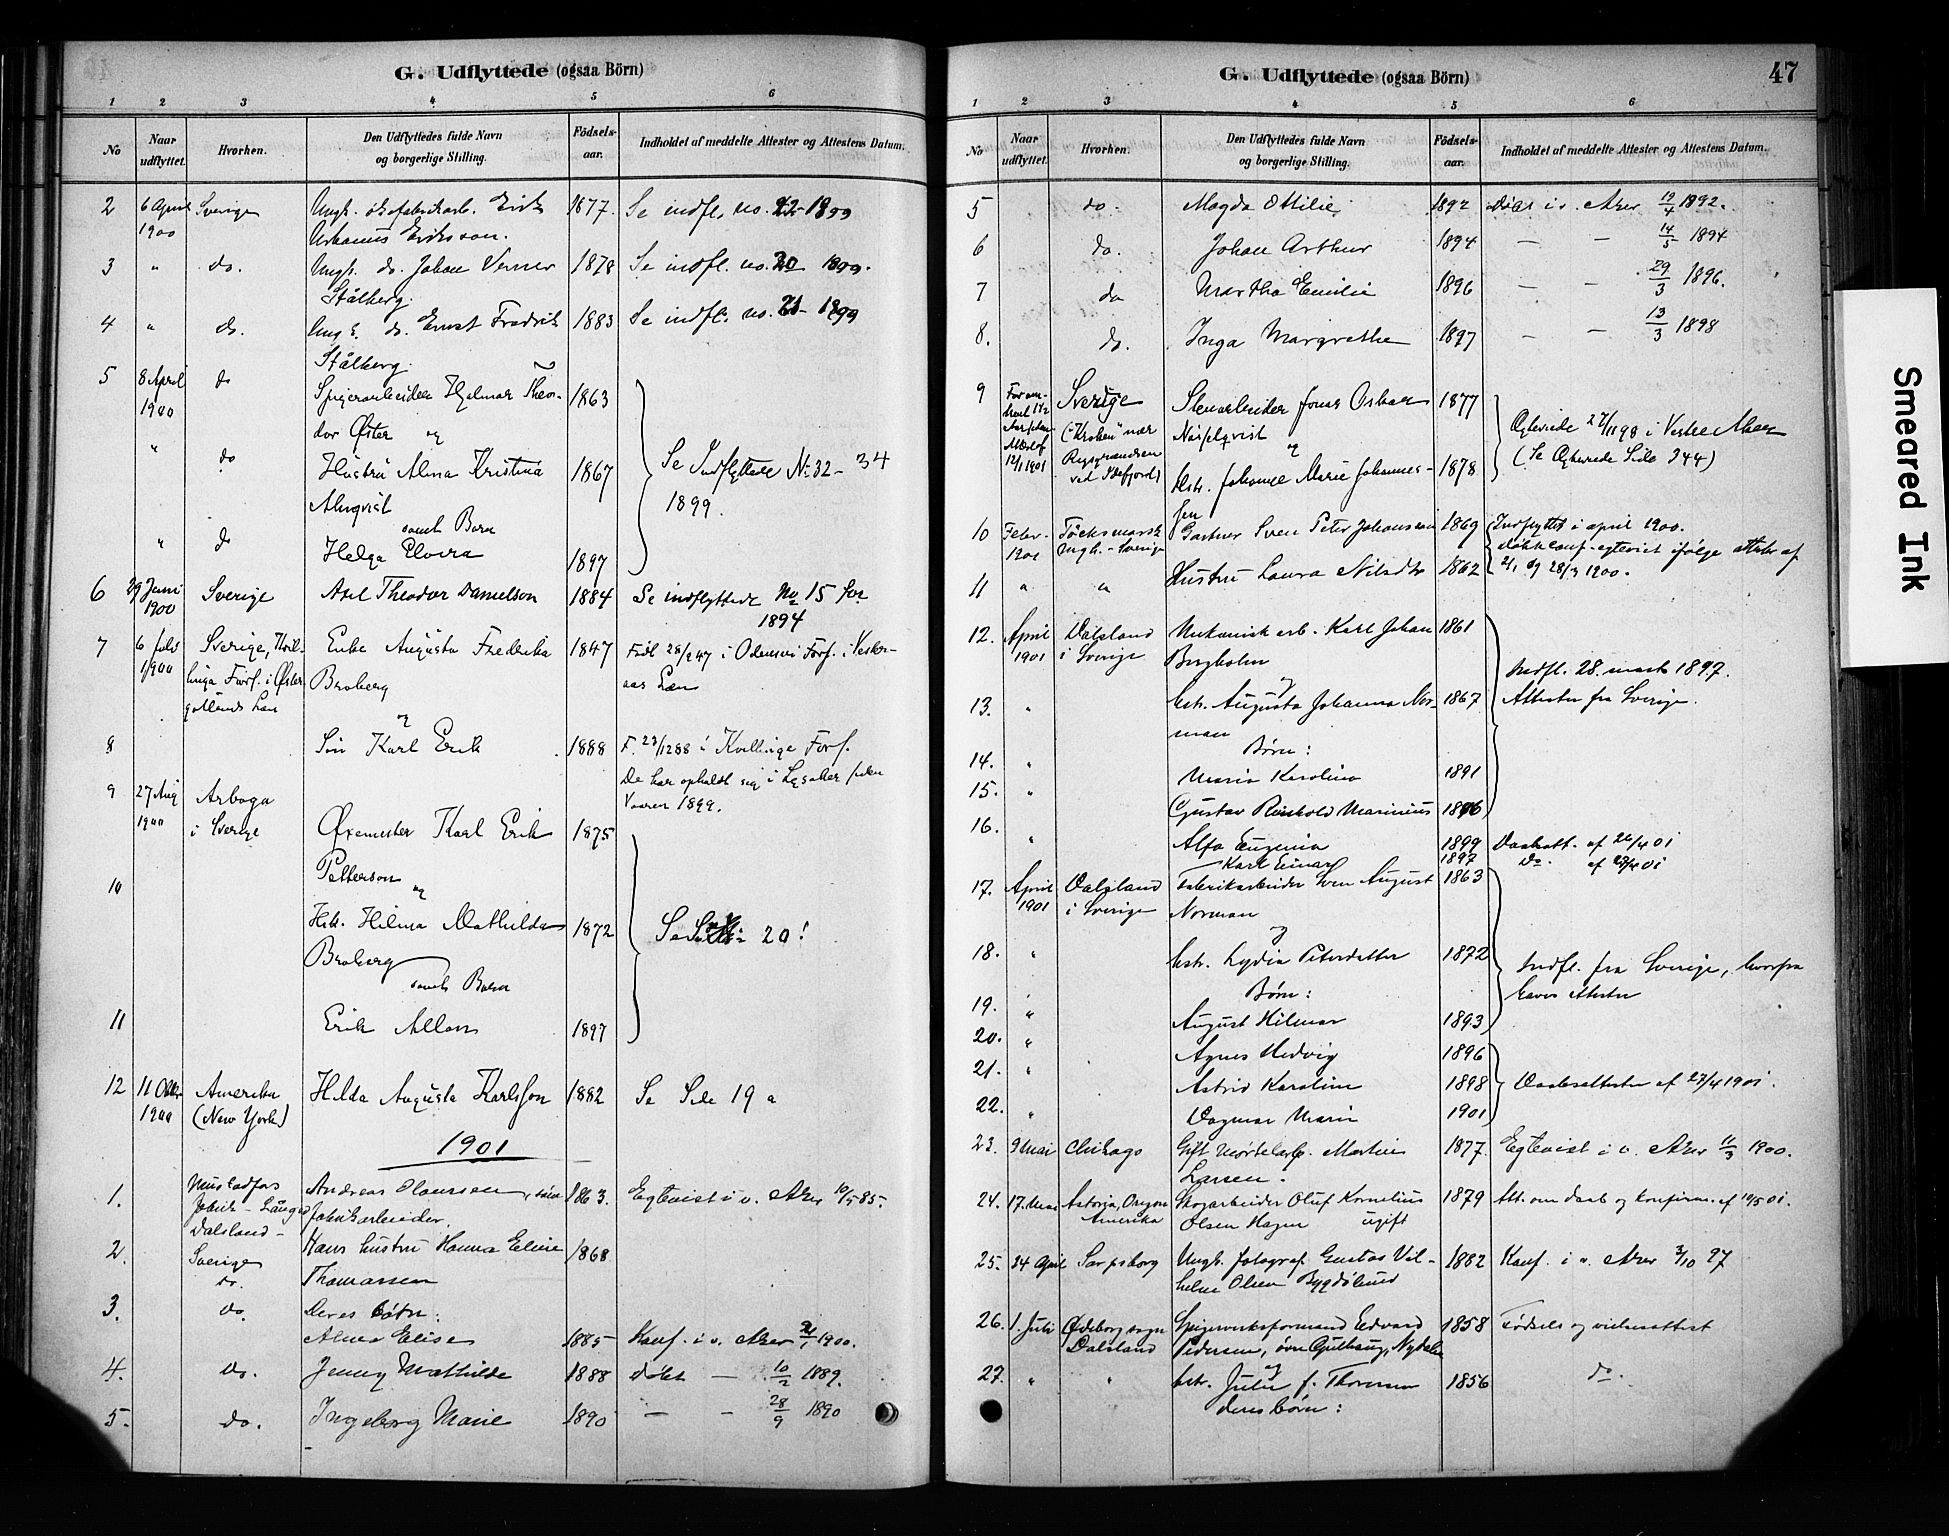 G. Udflyttede (ogsaa Börn)
1 2 3 4 5 6
No
Naar udflyttet.
Hvorhen.
Den Udflyttedes fulde Navn og borgerlige Stilling.
Födselsaar.
Indholdet af meddelte Attester og Attestens Datum.
2 6 April Sverige Ungk. Erik 1877. Se indfl. no. 22 - 1899
1900 Eriksson.
3 " do. Ungk. do. Johan Verner 1878 Se indfl. no. 20 1899.
Stålberg.
4 " do. Ungk. do. Ernst Fredrik 1883 Se indfl. no. 21 - 1899
Stålberg.
5 8 April do Spigerarbeider Hjalmar Theo- 1863
1900 dor Öster og
" do Hustru Alma Kristina 1867 Se Indflyttede No 32 - 34
Almqvist 1899.
samt Barn
" do Helga Elvira 1897
6 29 Juni Sverige Axel Theodor Danielson 1884 Se indflyttede No 15 for
1900 1894
7 6 July Sverige, Kvil- Enke Augusta Frederika 1847 Född 28/2 47 i Odensvi Fors. i Vester-
1900 linge Fors. i Öster- Broberg aas Læn
götlands Læn og
8 Sön Karl Erik 1888 F. 23/12 88 i Kvillinge Fors.
De har opholdt sig i Lysaker siden
9 27 Aug Arboga Vaaren 1899.
1900 i Sverige Øxemester Karl Erik 1875
Petterson
10 og
Hstr. Hilma Mathilda 1872 Se 20!
Broberg
samt Barn
11 Erik Allan 1897
12 11 Oktbr Amerika Hilda Augusta Karlsson 1882 Se Side 19 a
1900 (New York)
1901
1. Mustadfors Andreas Olaussen, 1863. Egteviet i v. Aker 10/5 85.
fabrik - Långed fabrikarbeider.
Dalsland -
2. Sverige Hans hustru Hanna Eline 1868
do. Thomassen
3. do. Deres børn:
Alma Elise 1885 Konf. i v. Aker 1900.
4. do. Jenny Mathilde 1888 døbt — 10/2 1889.
5. do. Ingeborg Marie 1890 — - 28/9 1890
G. Udflyttede (ogsaa Börn) 47
1 2 3 4 5 6
No
Naar udflyttet.
Hvorhen.
Den Udflyttedes fulde Navn og borgerlige Stilling.
Födselsaar.
Indholdet af meddelte Attester og Attestens Datum.
5 do. Magda Ottilie 1892 Døbt i v. Aker 19/4 1892.
6 do. Johan Arthur 1894 — — 14/5 1894
7 do Martha Emilie 1896 — - 29/3 1896.
8. do. Inga Margrethe 1897 — — 13/3 1898
9 Sverige Stenarbeider Jonas Oskar 1877
("Kroken" nær og Egteviede 27/11 98 i Vestre Aker
12/1 1901 Rigsgrændsen Hstr. Johanne Marie Johannes- 1878 (Se Egteviede Side 344)
ved Idefjord) sen
10 Febr. Töcksmark Gartner Sven Peter Johansson 1869 Indflyttet i april 1900.
1901 - Sverige døbt conf. egteviet ifølge attester af
11 " " Hustru Laura Nilsdtr 1862 28/3 1900.
12. April Dalsland Mekanisk arb. Karl Johan 1861
1901 i Sverige Bergholm
og Indfl. 28. marts 1897.
13. " hstr. Augusta Johanna Nor- 1867 Attester fra Sverige.
man
Børn:
14. " Maria Karolina 1891
15. " Gustav Reinhold Marinius 1896
16. " Alfa Eugenia 1899 Daabsatt. af 26/4 01
Karl Einar 1897 Do. af 01
17. April Dalsland Fabrikarbeider Sven August 1863
1901 i Sverige Norman
og
18. " hstr. Lydia Petersdatter 1872 Indfl. fra Sverige, hvorfra
Børn: haves attester
19. " August Hilmar 1893
20. " Agnes Hedvig 1896
21. " Astrid Karoline 1898 Daabsattester af 27/4 1901.
22. " Dagmar Marie 1901
23. 9 Mai Chikago Gift Martin 1877. Egteviet i v. Aker 11/3 1900.
Larsen.
24. 17. Mai Astoria, Oregon Skogarbeider Oluf Kornelius 1879 Att. om daab og konfirm. af 10/5 01.
Amerika Olsen Hagen ugift
25. 24 April Sarpsborg Ungk. fotograf Gustav Vil- 1882 Konf. i v. Aker 3/10 97
helm Olsen Bygdølund
26. 1. Juli Ødeborg sogn Spigerverksformand Edvard 1858 Fødsels og vielsesattest
Dalsland Pedersen, övre Gulhaug, Nydalen
og
27. " " hstr. Julie f. Thoresen 1856 do.
deres børn:
Smeared Ink